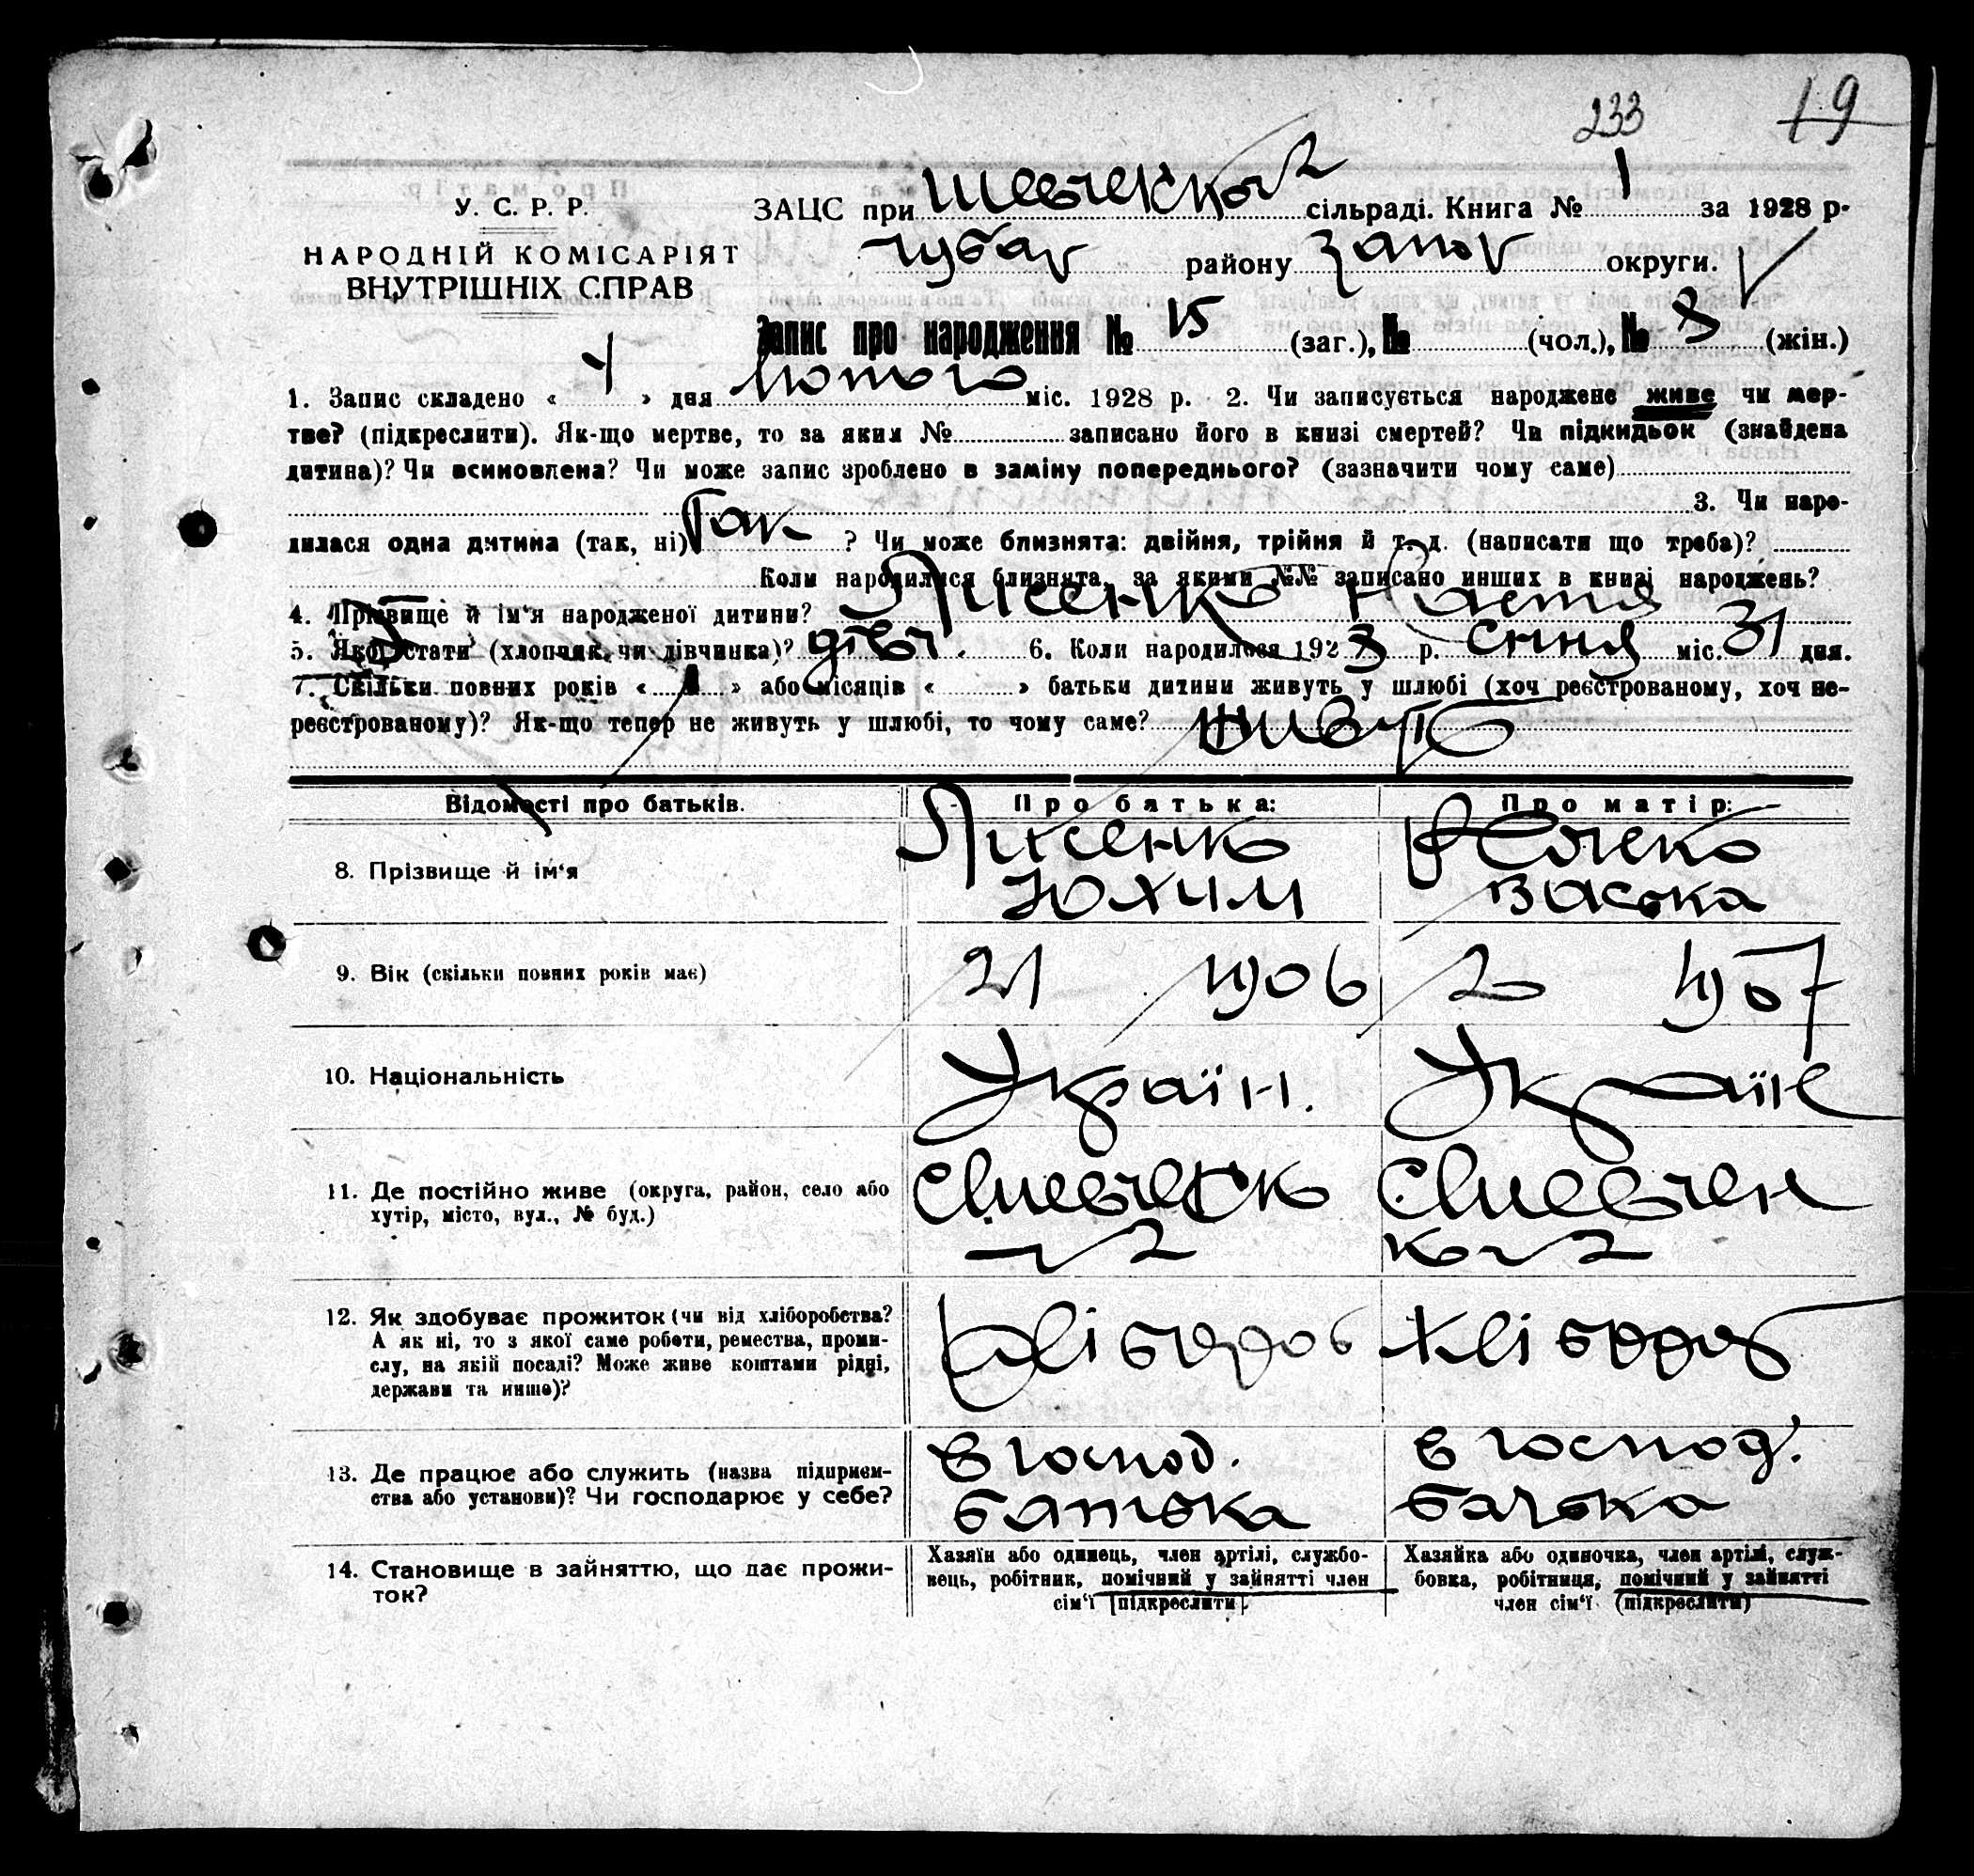 233 19
У. С. Р. Р.
НАРОДНІЙ КОМІСАРІЯТ
ВНУТРІШНІХ СПРАВ
ЗАЦС при сільраді. Книга № 1 за 1928 р.
Чубар району Запор округи.
Запис про народження № 15 (заг.), № (чол.), № 8 (жін.)
1. Запис складено « » дня лютого міс. 1928 р. 2. Чи записується народжене живе чи мер-
тве? (підкреслити). Як-що мертве, то за яким № записано його в книзі смертей? Чи підкидьок (знайдена
дитина)? Чи всиновлена? Чи може запис зроблено в заміну попереднього? (зазначити чому саме)
3. Чи наро-
дилася одна дитина (так, ні) Так ? Чи може близнята: двійня, трійня й т. д. (написати що треба)?
Коли народилися близнята, за якими №№ записано инших в книзі народжень?
4. Прізвище й ім'я народженої дитини? Лисенко Настя
5. Якої стати (хлопчик, чи дівчинка)? дівч. 6. Коли народилося 192 р. січня міс. 31 дня.
7. Скільки повних років « 1 » або місяців « » батьки дитини живуть у шлюбі (хоч реєстрованому, хоч не-
реєстрованому)? Як-що тепер не живуть у шлюбі, то чому саме? живуть
Відомості про батьків. Про батька: Про матір:
8. Прізвище й ім'я Лисенко
Юхим Васька
9. Вік (скільки повних років має) 21 1906 20 1907
10. Національність Україн. Україн
11. Де постійно живе (округа, район, село або Шевченк Шевчен
хутір, місто, вул., № буд.) 2 ко 2
12. Як здобуває прожиток (чи від хліборобства? Хлібороб Хлібороб
А як ні, то з якої саме роботи, ремества, проми-
слу, на якій посаді? Може живе коштами рідні,
держави та инше)?
13. Де працює або служить (назва підприєм- В господ. В господ.
ства або установи)? Чи господарює у себе? батька батька
14. Становище в зайняттю, що дає прожи- Хазяїн або одинець, член артілі, службо- Хазяйка або одиночка, член артілі, служ-
ток? вець, робітник, помічний у зайнятті член бовка, робітниця, помічний у зайнятті
сім'ї (підкреслити). член сім'ї (підкреслити)